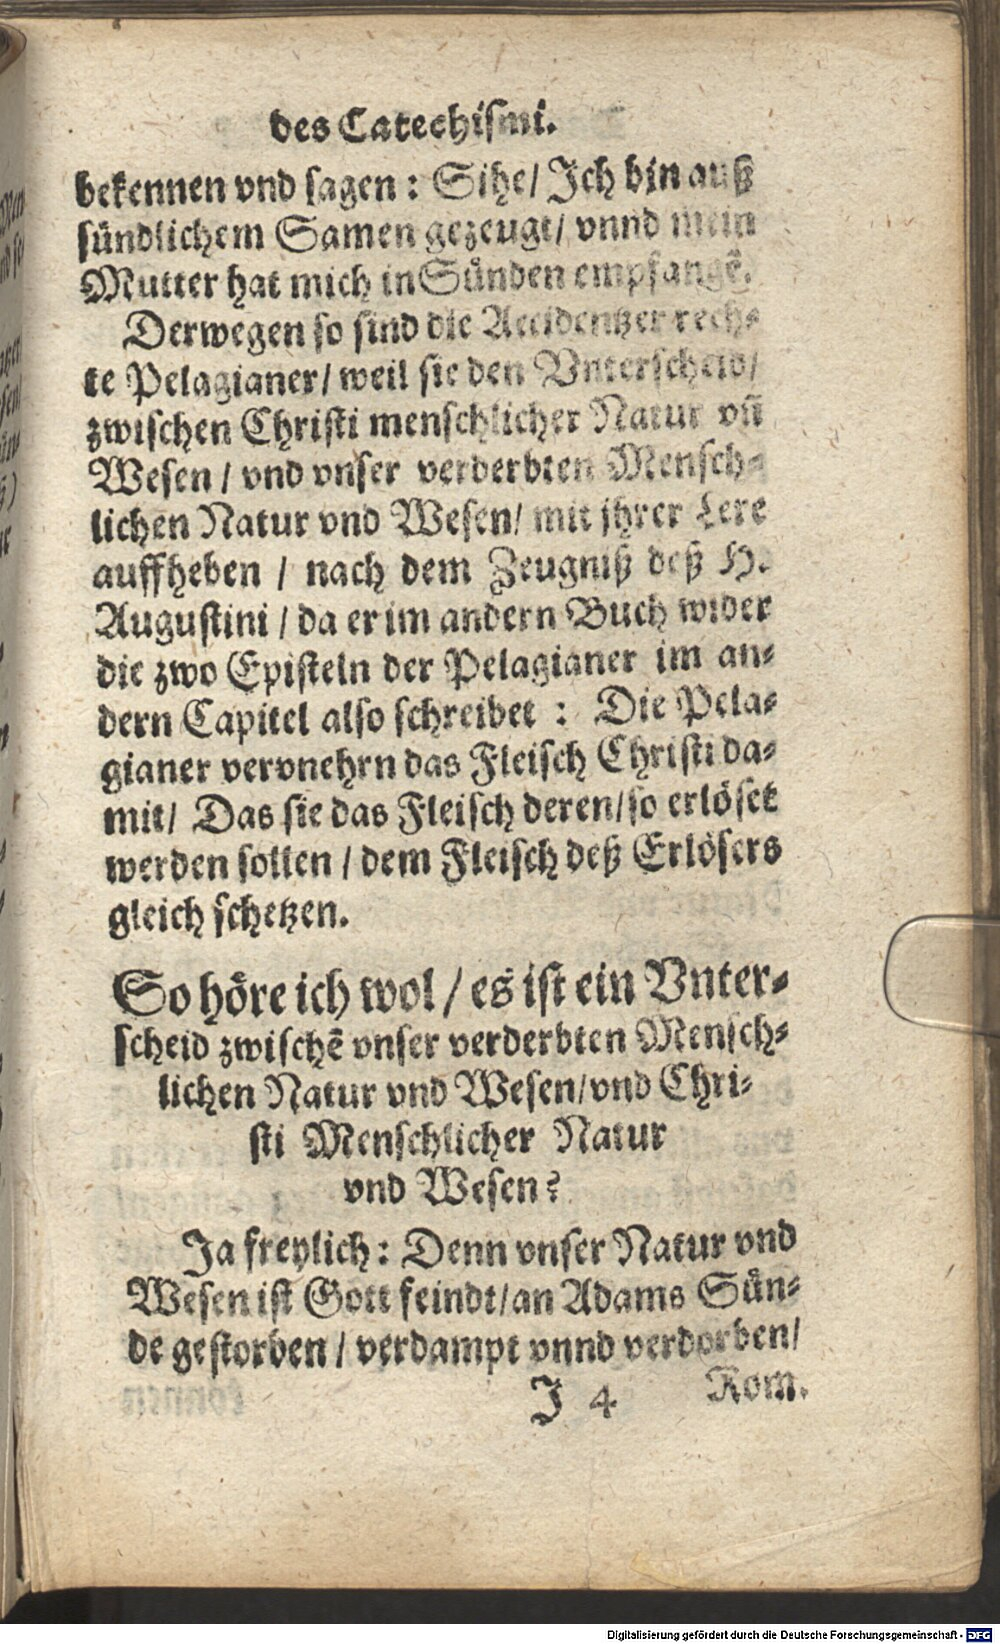 des Catechismi.
bekennen vnd sagen: Sihe/ Jch bin auß
sündlichem Samen gezeugt/ vnnd mein
Mutter hat mich in Sünden empfangẽ.
Derwegen so sind die Accidentzer rech-
te Pelagianer/ weil sie den Vnterscheid/
zwischen Christi menschlicher Natur vñ
Wesen/ vnd vnser verderbten Mensch-
lichen Natur vnd Wesen/ mit jhrer Lere
auffheben/ nach dem Zeugniß deß H.
Augustini/ da er im andern Buch wider
die zwo Episteln der Pelagianer im an-
dern Capitel also schreibet: Die Pela-
gianer vervnehrn das Fleisch Christi da-
mit/ Das sie das Fleisch deren/ so erlöset
werden sollen/ dem Fleisch deß Erlösers
gleich schetzen.
So höre ich wol/ es ist ein Vnter-
scheid zwischẽ vnser verderbten Mensch-
lichen Natur vnd Wesen/ vnd Chri-
sti Menschlicher Natur
vnd Wesen?
Ja freylich: Denn vnser Natur vnd
Wesen ist Gott feindt/ an Adams Sün-
de gestorben/ verdampt vnnd verdorben/
J 4 Rom.
Digitalisierung gefördert durch die Deutsche Forschungsgemeinschaft - DFG